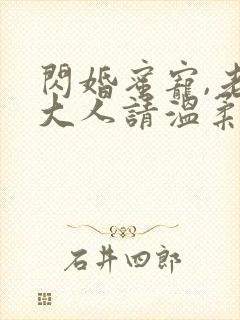 閃婚蜜寵,老
大人請溫柔
石井四郎